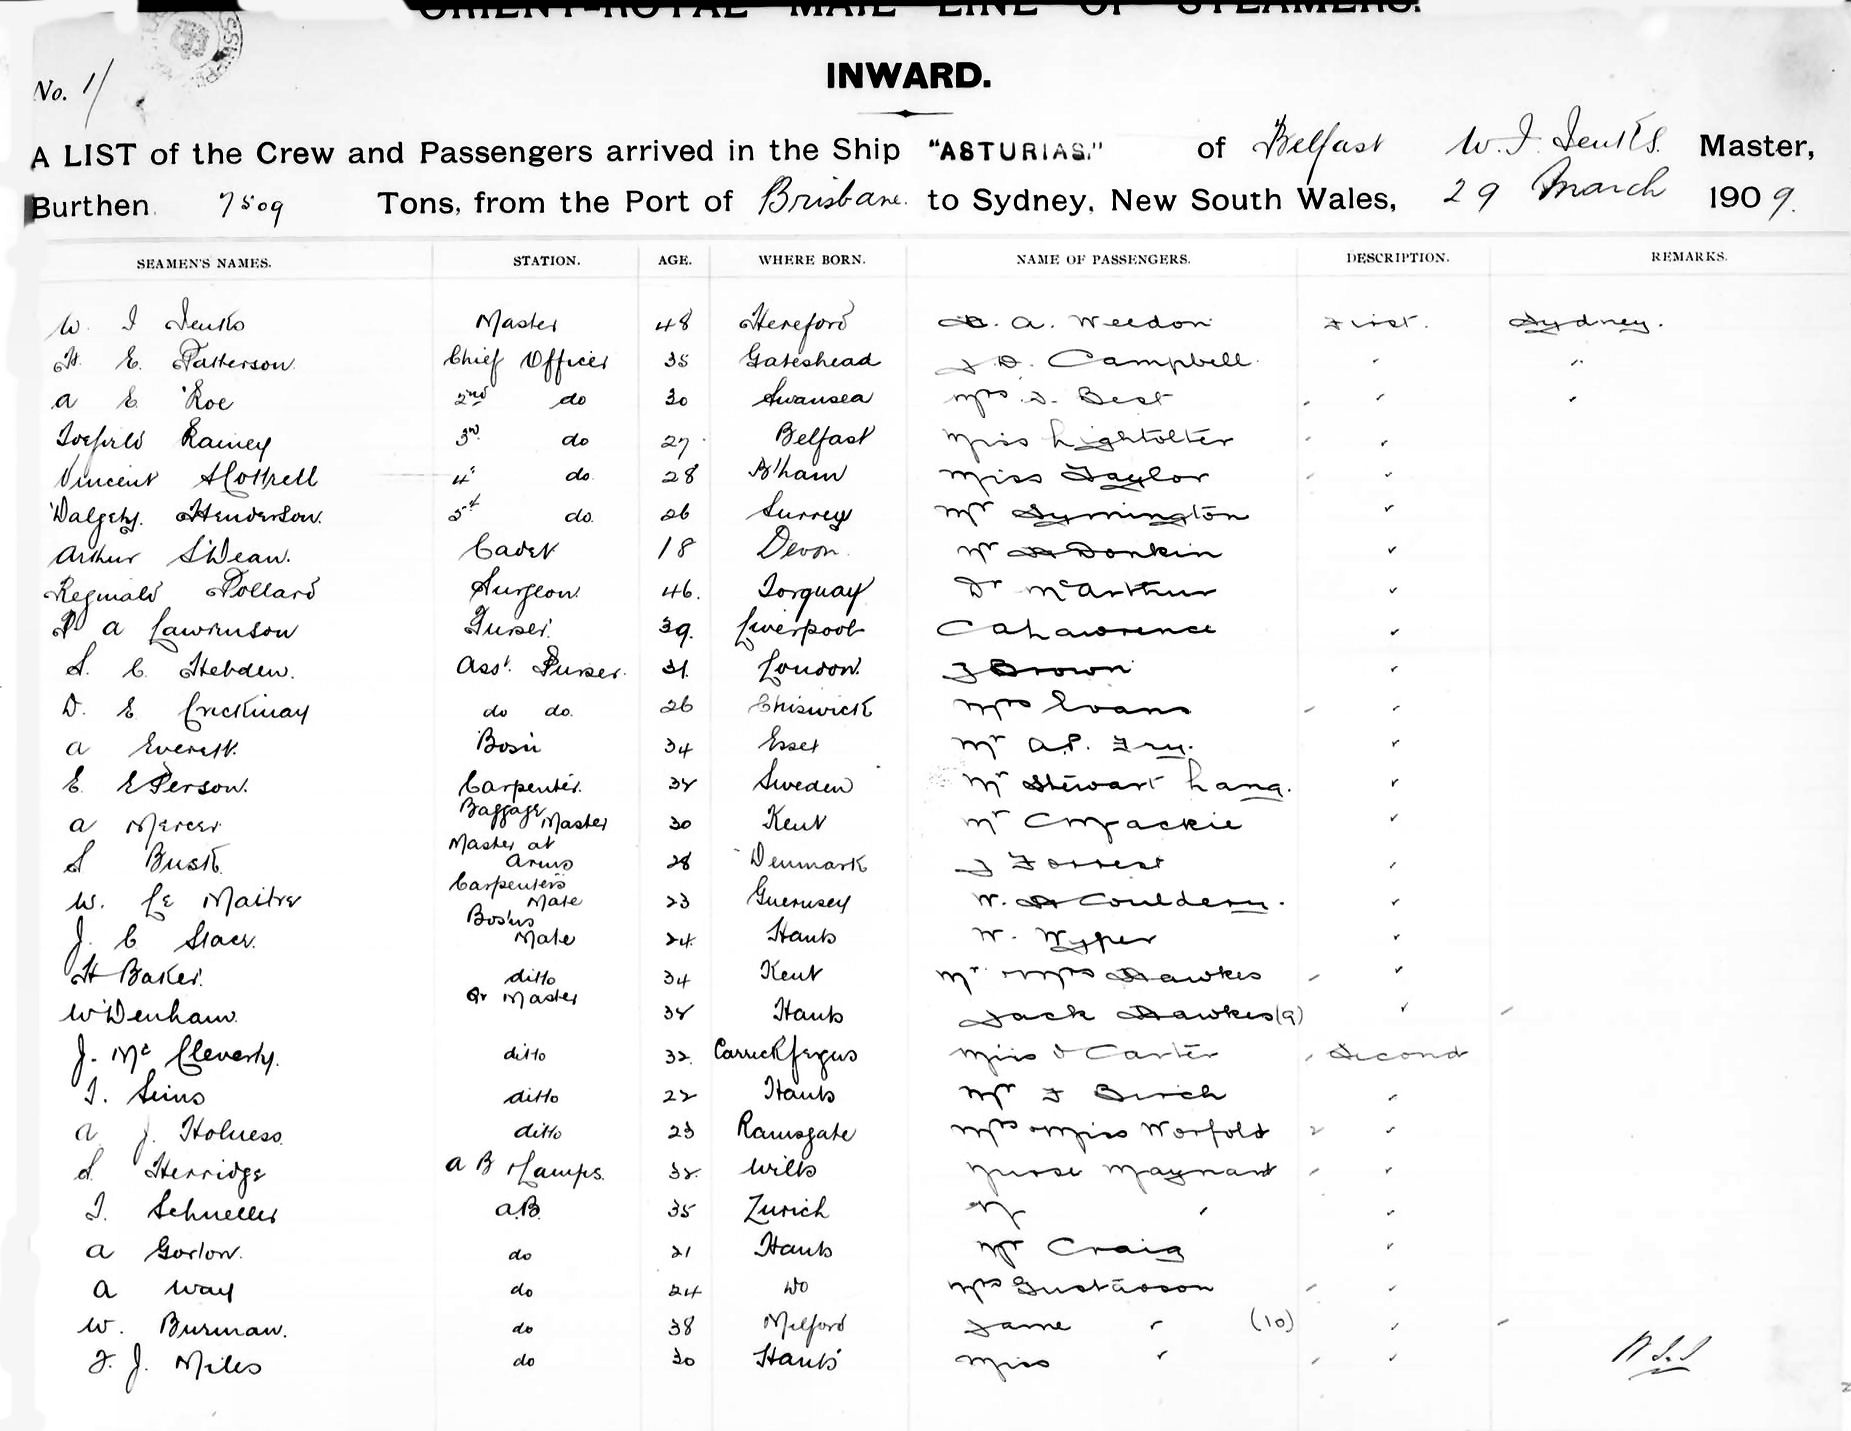 ORIENT-ROYAL MAIL LINE OF STEAMERS.
INWARD.
No. 1/
A LIST of the Crew and Passengers arrived in the Ship "ASTURIAS." of Belfast W. I. Jenks. Master,
Burthen 7509 Tons, from the Port of Brisbane. to Sydney, New South Wales, 29 March 1909.
SEAMEN'S NAMES. STATION. AGE. WHERE BORN. NAME OF PASSENGERS. DESCRIPTION. REMARKS.
W. I Jenks Master 48 Hereford A. Weedon First. Sydney.
H. E. Patterson Chief Officer 35 Gateshead J. D. Campbell "
a E Roe 2nd do 30 Swansea Mrs Best
Rainey 3rd do 27 Belfast Miss Lightoller
Vincent do 28 B'ham Miss Taylor
Dalgety. Henderson. do. 26 Surrey Mr Symington
Arthur S'Dean. Cadet 18 Devon Mr Donkin
Reginald Pollard Surgeon 46. Torquay Dr McArthur
P a Lawrinson Purser. 39. Liverpool C A Lawrence
S. C. Hebden. Asst. Purser. 31. London. J Brown
D. E. Crickmay do do. 26 Chiswick Mrs Evans
a Everett. Bosn 34 Essex Mr A.P. Fry.
E. EPerson. Carpenter. 38 Sweden Mr Stewart Lang.
a Mercer Baggage Master 30 Kent Mr C Mackie
S Busk Master at Arms 28 Denmark J Forrest
W. Le Maitre Carpenters Mate 23 Guernsey W. Couldery.
J. C Stacr. Bosns Mate 24 Hants W. Wyper
H Baker. ditto 34 Kent Mr Mrs Hawkes
W Denham. Qr Master 38 Hants Jack Hawkes (9)
J. Mc Cleverty. ditto 32. Carrickfergus Miss Carter Second
T. Sims ditto 22 Hants Mr F Birch
a J. Holness. ditto 23 Ramsgate Mrs Miss Worfold 2
S Herridge A B Lamps. 32. Wilts Nurse Maynard
T. Schneller A.B. 35 Zurich Mr "
a Gorton. do 21 Hants Mr Craig
a Way do 24 do Mrs Gustavson
W. Burman. do 38 Milford Jane " (10)
F. J. Miles do 30 Hants Miss "